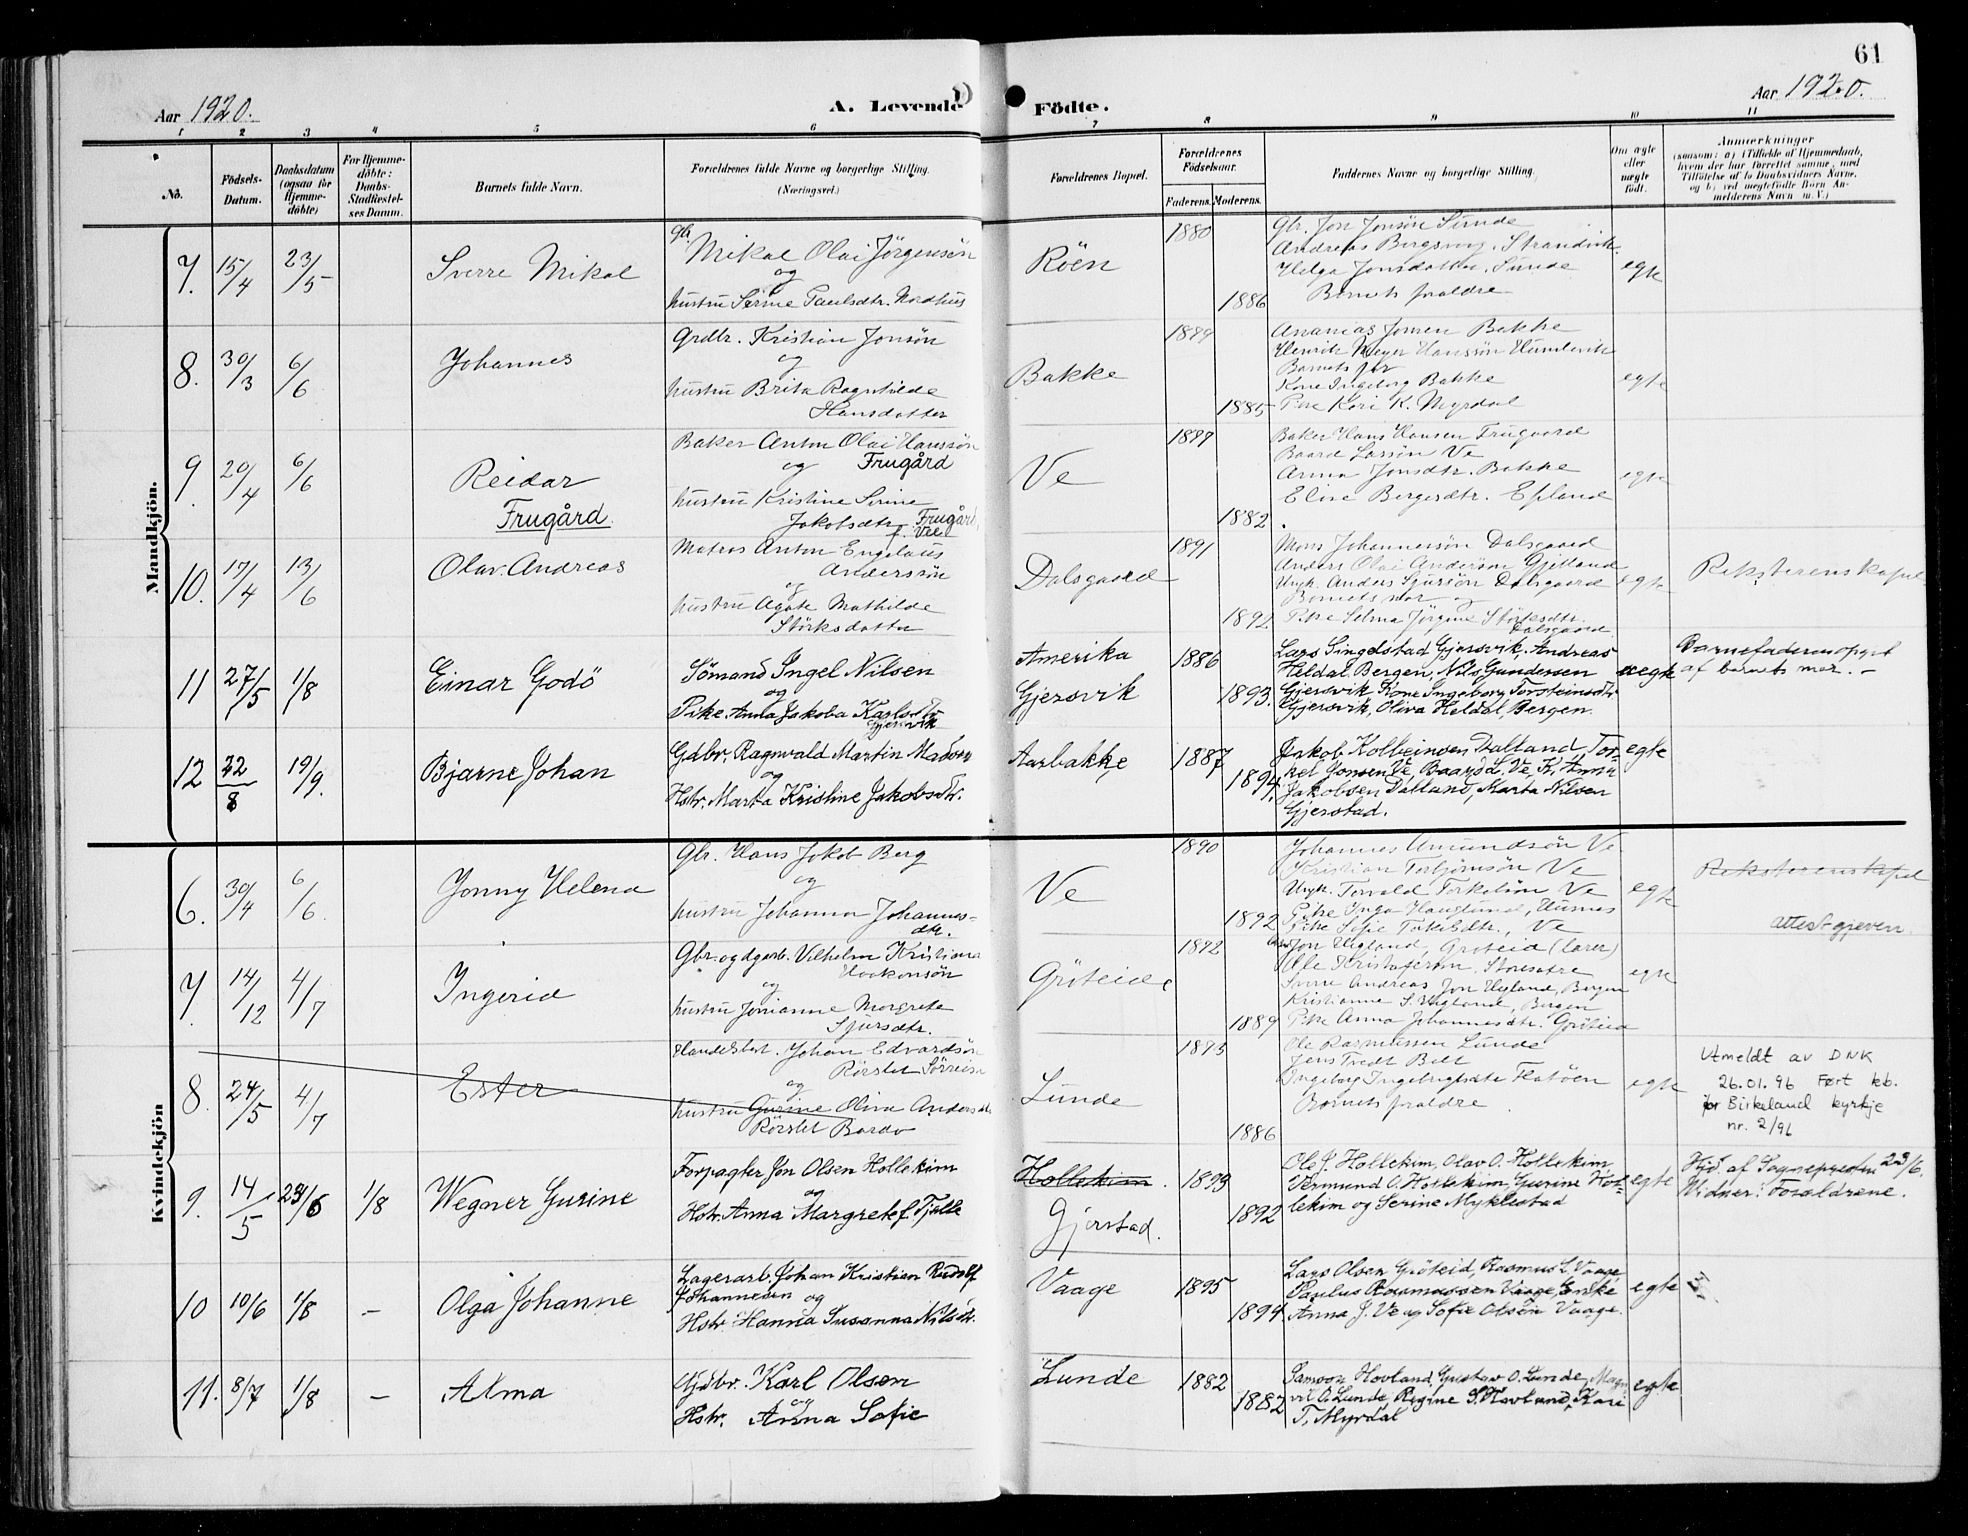 61
Aar 1920.
A. Levende Födte.
Aar 1920.
1 2 3 4 5 6 7 8 9 10 11
No.
Födsels-Datum.
Daabsdatum (ogsaa for Hjemmedöbte)
For Hjemmedöbte: Daabs-Stadfæstelses Datum.
Barnets fulde Navn.
Forældrenes fulde Navne og borgerlige Stilling. (Næringsvei.)
Forældrenes Bopæl.
Forældrenes Födselsaar.
Faderens. Moderens.
Faddernes Navne og borgerlige Stilling.
Om ægte eller uægte födt.
Anmærkninger
(saasom: a) i Tilfælde af Hjemmedaab, hvem der har forrettet samme, med Tilföielse af to Daabsvidners Navne, og b) ved uægtefödte Börn Anmelderens Navn m. V.)
Mandkjön.
7. 15/4 23/5 Sverre Mikal
Gbr. Mikal Olai Jörgensön
og
hustru Serine Paulsdtr. Nordhus
Röen 1880 1886
Gbr. Jon Jonsön Sunde
Andreas Bergsvog, Strandvik
Helga Jonsdatter, Sunde
Barnets foraldre
egte
8. 30/3 6/6 Johannes
Grdbr. Kristian Jonsön
og
hustru Brita Ragnhilde
Hansdatter
Bakke 1885
Ananias Jonsen Bakke
Henrik Meyer Hanssön Hundvik
Barnets far
Kone Ingeborg Bakke
Pike Kari K. Myrdal
egte
9. 20/4 6/6 Reidar
Frugård.
Baker Anton Olai Hanssön
og Frugård
hustru Kristine Sirine
Jakobsdtr. Frugård,
f. Vee
Ve 1882
Baker Hans Hansen Frugaard
Baard Larsön Ve
Anna Jonsdtr. Bakke
Elise Bergesdtr. Epland
egte
10. 17/4 13/6 Olav Andreas
Matros Anton Engelaus
Anderssön
og
hustru Agate Mathilde
Störksdatter
Dalsgaard 1891 1892
Mons Johannessön Dalsgaard
Anders Olai Andersön Gjitland
Ungk. Anders Sjursön Dalsgaard
Barnets mor og
Pike Selma Jörgine Störksdtr.
Dalsgaard
egte
Reksterenskapel
11 27/5 1/8 Einar Godö
Sömand Ingel Nilsen
og
Pike Anna Jakoba Karlsdtr
Gjersvik
Amerika
Gjersvik
1886 1893.
Lars Singelstad Gjersvik, Andreas
Heldal Bergen, Nils Gundersen
Gjersvik, Kone Ingeborg Torsteinsdtr
Gjersvik, Oliva Heldal, Bergen.
uegte
Barnefaderen opgit
af barnets mor. –
12 22/8 19/9. Bjarne Johan
Gdbr. Ragnvald Martin Madsen
og
Hstr. Marta Kristine Jakobsdtr.
Aarbakke 1887 1894.
Jakob Kolbeinsen Dalland, Tor-
kel Jonsen Ve, Baard L. Ve, K. Anna
Jakobsen Dalland, Marta Nilsen
Gjerstad.
egte
Kvindekjön
6. 30/4 6/6. Jonny Helena
Gbr. Hans Jakob Berg
og
hustru Johanna Johannes-
dtr.
Ve 1890 1892
Johannes Amundsön Ve
Kristian Torbjörnsön Ve
Ungk. Torvald Torkelsön Ve
Pike Inga Hauglund, Eurnes
Pike Sofie Torkelsdtr., Ve
egte
Reksterenskapel
attest gjeven.
7. 14/12 4/7 Ingerid
Gbr. og dgarb. Vilhelm Kristian
Haakonsön
og
hustru Jonianne Margrete
Sjursdtr.
Gröteide 1892 1889
Jon Ulgland, Gröteid (lærer)
Ole Kristofersön, Storesætre
Sverre Andreas Jon Ulgland, Bergen
Kristianne S. Ulgland, Bergen
Pike Anna Johannesdtr. Gröteid
egte
8. 24/5 4/7 Ester
Handelsbest. Johan Edvardsön
Rörslet Sörreisa
og
hustru Gurine Oliva Andersdtr
Rörslet Bardo
Lunde 1893 1886
Ole Rasmussen Lunde
Jens Tvedt Bolt
Ingeborg Ingebrigtsdtr Flatöen
Barnets foraldre
egte
Utmeldt av DNK
26.01.96 Ført kb.
for Birkeland kyrkje
nr. 2/96
9. 14/5 23/6 1/8 Wegner Gurine
Forpagter Jon Olsen Hollekim
og
Hstr. Anna Margrete f. Tjelle
Hollekim.
Gjerstad.
1893 1892
Ole J. Hollekim, Olav O. Hollekim,
Vermund O. Hollekim, Gurine Hol-
lekim og Serine Myklestad
egte
Hjd. af Sognepresten 23/6.
Vidner: Forældrene.
10 10/6 1/8 – Olga Johanne
Lagerarb. Johan Kristian Rudolf
Johannesen og
Hstr. Hanna Susanna Nilsdtr.
Vaage 1895 1894.
Lars Olsen Gröteid, Rasmus L. Vaage,
Paulus Rasmussen Vaage, Enke
Anna J. Ve og Sofie Olsen Vaage.
egte
11. 8/7 1/8 – Alma
Gjdbr. Karl Olsen
og
Hstr. Anna Sofie
Lunde 1882 1882
Samson Hovland, Gustav O. Lunde, Magn-
vil O. Lunde, Regine S. Hovland, Kari
T. Myrdal
egte